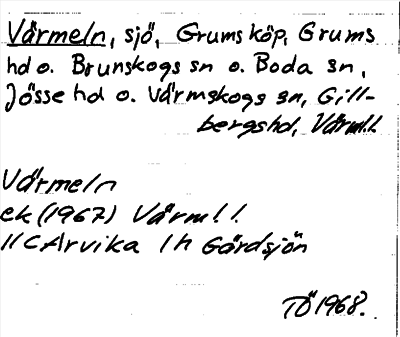 Värmeln, sjö, Grums köp, Grums
hd o. Brunskogs sn o. Boda sn,
Jösse hd o. Värmskogs sn, Gill-
bergs hd, Värml.
Värmeln
ek (1967) Värml.
11C Arvika 1h Gärdsjön
TÖ 1968.